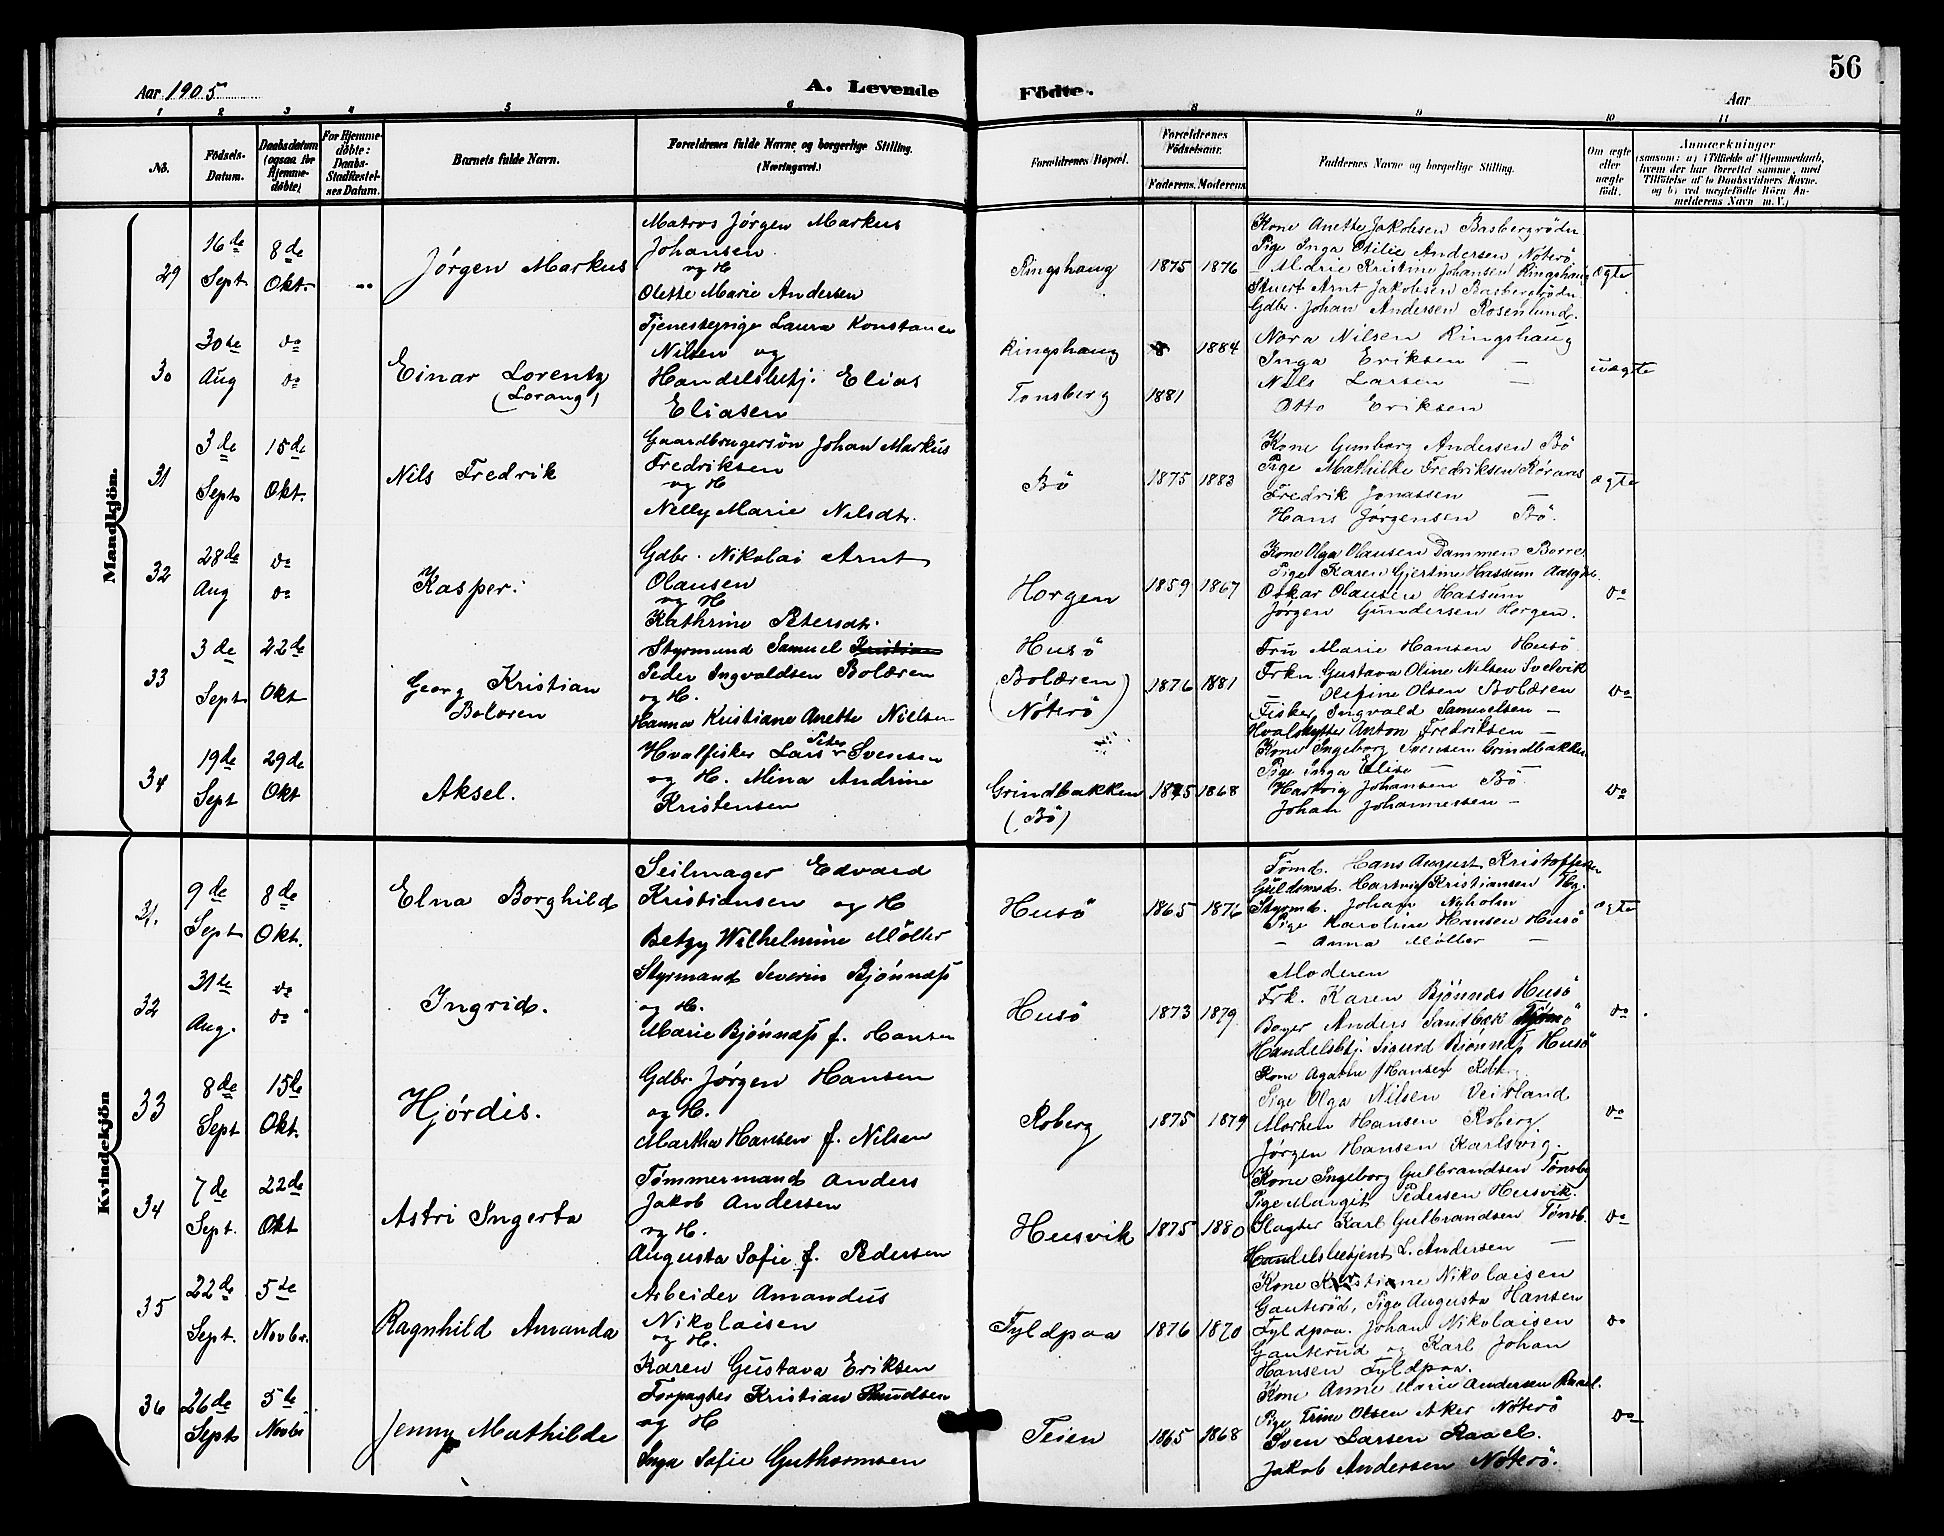 56
Aar 1905
A. Levende Födte.
Aar
1 2 3 4 5 6 8 9 10 11
No.
Födsels-Datum.
Daabsdatum (ogsaa for Hjemme-döbte)
For Hjemme-döbte: Daabs-Stadfæstel-ses Datum.
Barnets fulde Navn.
Forældrenes fulde Navne og borgerlige Stilling.
(Næringsvei.)
Forældrenes Bopæl.
Forældrenes Födselsaar.
Faderens. Moderens.
Faddernes Navne og borgerlige Stilling.
Om ægte eller uægte födt.
Anmærkninger
(saasom: a) i Tilfælde af Hjemmedaab,
hvem der har forrettet samme, med
Tilföielse af to Daabsvidners Navne,
og b) ved uægtefödte Börn An-
melderens Navn m. V.)
Mandkjön.
29
16de Sept
8de Okt.
Jørgen Markus
Matros Jørgen Markus
Johansen
og H
Olette Marie Andersen
Ringshaug
1875 1876
Kone Anette Jakobsen Basbergrødn
Pige Inga Otilie Andersen Nøterö
— Marie Kristine Johansen Ringshaug
Stuert Arnt Jakobsen Basbergrødn
Gdbr. Johan Andersen Rosenlund.
ægte
30
30te Aug
do do
Einar Lorentz
(Lorang)
Tjenestepige Laura Konstance
Nilsen og
Handelsbetj. Elias
Eliasen
Ringshaug
1884
Tønsberg
1881
Nora Nilsen Ringshaug
Inga Eriksen —
Nils Larsen —
Otto Eriksen
uægte
31
3de Sept
15de Okt.
Nils Fredrik
Gaardbrugersøn Johan Markus
Fredriksen
og H
Nelly Marie Nilsdtr.
Bö
1875 1883
Kone Gunborg Andersen Bö
Pige Mathilde Fredriksen Røraas
Fredrik Jonassen —
Hans Jørgensen Bö.
ægte
32
28de Aug
do do
Kasper.
Gdbr. Nikolai Arnt
Olausen
og H
Kathrine Petersdtr.
Horgen
1859 1867
Kone Olga Olausen Dammen Borre
Pige Karen Gjertine Hassum
Oskar Olausen Hassum
Jørgen Gundersen Horgen.
do
33
3de Sept
22de Okt
Georg Kristian
Bolæren
Styrmand Samuel Kristian
Peder Ingvaldsen Bolæren
og H.
Hanna Kristiane Anette Nielsen
Husö
(Bolæren
Nøterö)
1876 1881
Fru Marie Hansen Husö
Frkn Gustava Oline Nilsen Svelvik
— Olefine Olsen Bolæren
Fisker Ingvald Samuelsen —
Hvalskytter Anton Fredriksen —
do
34
19de Sept
29de Okt
Aksel.
Hvalfisker Lars Peter Svensen
og H. Mina Andrine
Kristensen
Grindbakken
(Bö)
1875 1868
Kone Ingeborg Svensen Grindbakken
Pige Inga Elise —
Hartvig Johansen Bö
Johan Johannessen —
do
Kvindekjön
31.
9de Sept
8de Okt.
Elna Borghild
Seilmager Edvard
Kristiansen og H
Betzy Wilhelmine Möller
Husö
1865 1876
Tømd. Hans August Kristoffersen
Guldsmed. Hartvig Kristiansen Tbg.
Styrmd. Johan Nyholm
Pige Karoline Hansen Husö
— Anna Möller —
ægte
32
31te Aug.
do do
Ingrid.
Styrmand Severin Bjønnæss
og H.
Marie Bjønnæss f. Hansen
Husö
1873 1879
Moderen
Frk. Karen Bjønnes Husö
Bager Anders Sandbæk
Handelsbtj. Sigurd Bjønnæss Husö
do
33
8de Sept
15de Okt.
Hjørdis.
Gdbr. Jørgen Hansen
og H.
Martha Hansen f. Nilsen
Roberg
1875 1879
Kone Agathe Hansen Rob.
Pige Olga Nilsen Veirland
Morten Hansen Roberg
Jørgen Hansen Karlsvig.
do
34
7de Sept.
22de Okt
Astri Ingerta
Tømmermand Anders
Jakob Andersen
og H.
Augusta Sofie f. Pedersen
Husvik
1875 1880
Kone Ingeborg Gulbrandsen Tønsbg
Pige Margit Pedersen Husvik.
Slagter Karl Gulbrandsen Tønsb.
Handelsbetjent L. Andersen —
do
35
22de Sept.
5te Novbr.
Ragnhild Amanda
Arbeider Amandus
Nikolaisen
og H.
Karen Gustava Eriksen
Fyldpaa
1876 1870
Kone Kristiane Nikolaisen
Gauterød, Pige Augusta Hansen
Fyldpaa. Johan Nikolaisen
Gauterud og Karl Johan
Hansen Fyldpaa.
do
36
26de Sept
5te Novbr
Jenny Mathilde
Forpagter Kristian Knudsen
og H
Inga Sofie Guthormsen
Teien
1865 1868
Kone Anne Marie Andersen Raael.
Pige Trine Olsen Aker Nøterö
Sven Larsen Raael.
Jakob Andersen Nøterö.
do